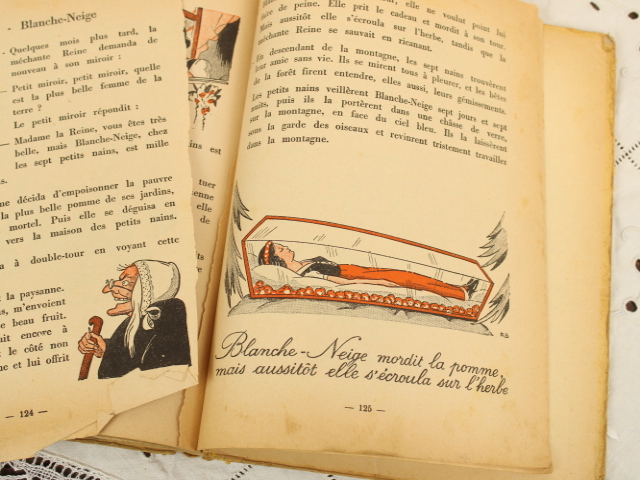 - Blanche-Neige
- Quelques mois plus tard, la
méchante Reine demanda de
nouveau à son miroir :
- Petit miroir, petit miroir, quelle
est la plus belle femme de la
terre ?
Le petit miroir répondit :
- Madame la Reine, vous êtes très
belle, mais Blanche-Neige, chez
les sept petits nains, est mille
s.
me décida d'empoisonner la pauvre
la plus belle pomme de ses jardins,
mortel. Puis elle se déguisa en
vers la maison des petits nains.
a à double-tour en voyant cette
t la paysanne.
s, m'envoient
e beau fruit.
uit encore à
t le côté non
ne et lui offrit
— 124 —
ns est
tuer
enne
elle
de
elle ne voulut point lui
faire de peine. Elle prit le cadeau et mordit à son tour.
Mais aussitôt elle s'écroula sur l'herbe, tandis que la
méchante Reine se sauvait en ricanant.
En descendant de la montagne, les sept nains trouvèrent
leur amie sans vie. Ils se mirent tous à pleurer, et les bêtes
de la forêt firent entendre, elles aussi, leurs gémissements.
Les petits nains veillèrent Blanche-Neige sept jours et sept
nuits, puis ils la portèrent dans une châsse de verre,
sur la montagne, en face du ciel bleu. Ils la laissèrent
sous la garde des oiseaux et revinrent tristement travailler
dans la montagne.
Blanche-Neige mordit la pomme,
mais aussitôt elle s'écroula sur l'herbe
— 125 —